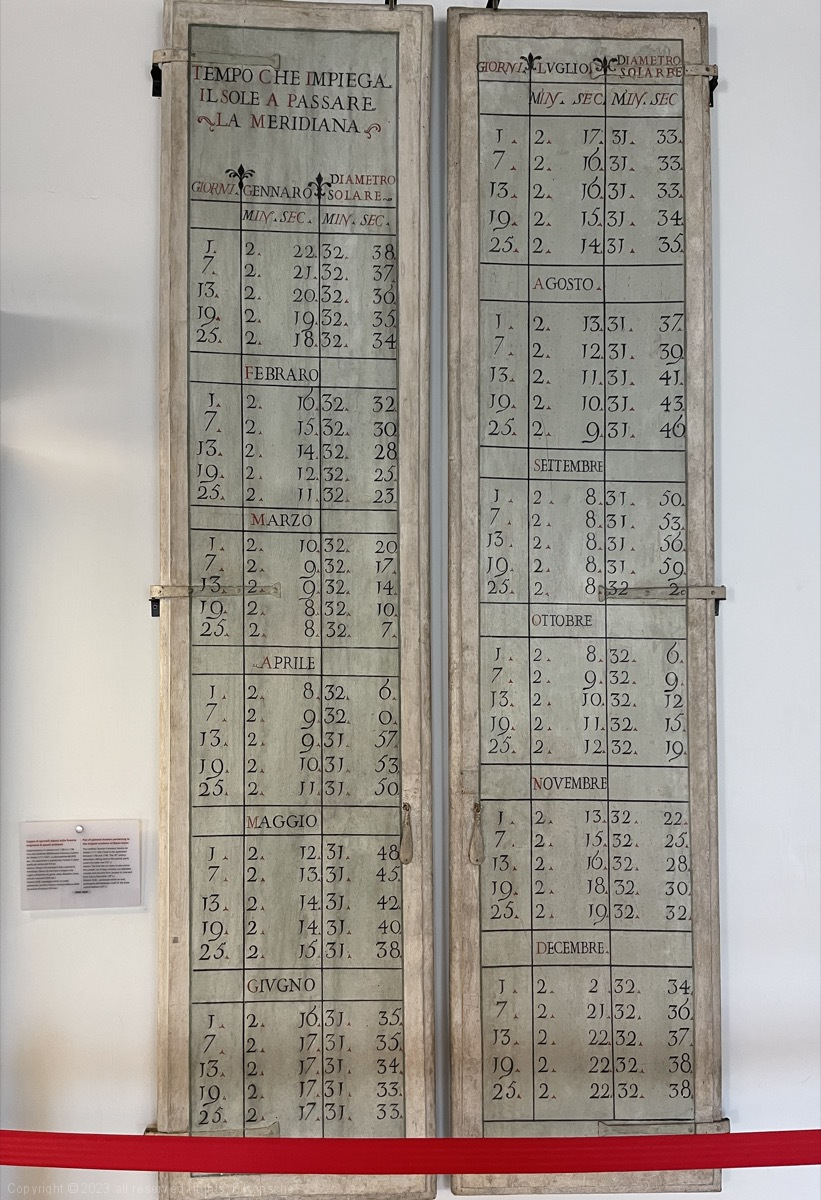 TEMPO CHE IMPIEGA
IL SOLE A PASSARE
LA MERIDIANA
GIORNI GENNARO DIAMETRO SOLARE
MIN. SEC. MIN. SEC.
1. 2. 22. 32. 38
7. 2. 21. 32. 37
13. 2. 20. 32. 36
19. 2. 19. 32. 35
25. 2. 18. 32. 34
FEBRARO
1. 2. 16. 32. 32
7. 2. 15. 32. 30
13. 2. 14. 32. 28
19. 2. 12. 32. 25
25. 2. 11. 32. 23
MARZO
1. 2. 10. 32. 20
7. 2. 9. 32. 17
13. 2. 9. 32. 14
19. 2. 8. 32. 10
25. 2. 8. 32. 7.
APRILE
1. 2. 8. 32. 6.
7. 2. 9. 32. 0.
13. 2. 9. 31. 57
19. 2. 10. 31. 53
25. 2. 11. 31. 50
MAGGIO
1. 2. 12. 31. 48
7. 2. 13. 31. 45
13. 2. 14. 31. 42
19. 2. 14. 31. 40
25. 2. 15. 31. 38
GIVGNO
1. 2. 16. 31. 35
7. 2. 17. 31. 35
13. 2. 17. 31. 34
19. 2. 17. 31. 33
25. 2. 17. 31. 33
GIORNI LVGLIO DIAMETRO SOLARRE
MIN. SEC. MIN. SEC
1. 2. 17. 31. 33.
7. 2. 16. 31. 33
13. 2. 16. 31. 33
19. 2. 15. 31. 34
25. 2. 14. 31. 35
AGOSTO.
1. 2. 13. 31. 37
7. 2. 12. 31. 39
13. 2. 11. 31. 41
19. 2. 10. 31. 43
25. 2. 9. 31. 46
SETTEMBRE
1. 2. 8. 31. 50
7. 2. 8. 31. 53
13. 2. 8. 31. 56
19. 2. 8. 31. 59
25. 2. 8. 32. 2.
OTTOBRE
1. 2. 8. 32. 6.
7. 2. 9. 32. 9.
13. 2. 10. 32. 12
19. 2. 11. 32. 15
25. 2. 12. 32. 19
NOVEMBRE
1. 2. 13. 32. 22
7. 2. 15. 32. 25
13. 2. 16. 32. 28
19. 2. 18. 32. 30
25. 2. 19. 32. 32
DECEMBRE.
1. 2. 2 . 32. 34
7. 2. 21. 32. 36
13. 2. 22. 32. 37
19. 2. 22. 32. 38
25. 2. 22. 32. 38